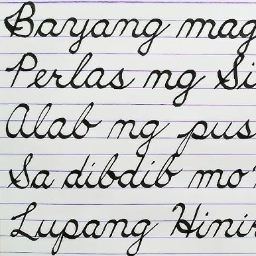 Bayang mag
Perlas ng Si
Alab ng pus
Sa dibdib mo'
Lupang Hinir